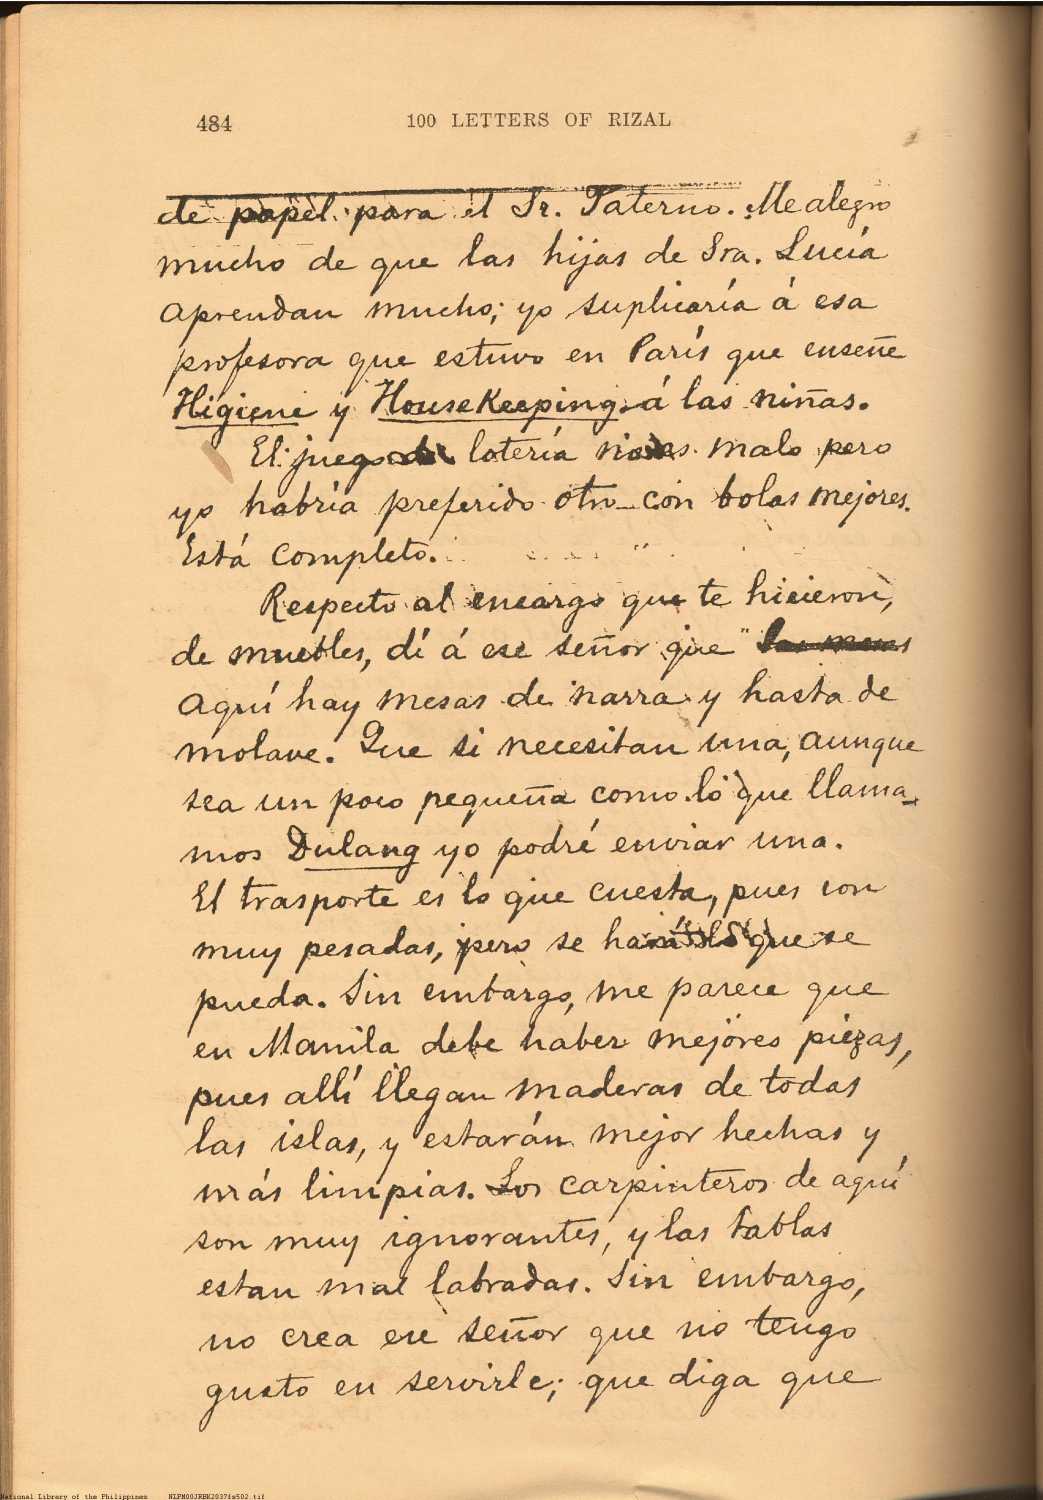 484
100 LETTERS OF RIZAL
de papel para el Sr. Paterno. Me alegro
mucho de que las hijas de Sra. Lucía
aprendan mucho; yo suplicaría á esa
profesora que estuvo en París que enseñe
Higiene y HouseKeeping á las niñas.
El juego de lotería no es malo pero
yo habría preferido otro con bolas mejores.
Está completo.
Respecto al encargo que te hicieron,
de muebles, dí á ese señor que
aquí hay mesas de narra y hasta de
molave. Que si necesitan una, aunque
sea un poco pequeña como lo que llama-
mos Dulang yo podré enviar una.
El trasporte es lo que cuesta, pues son
muy pesadas, pero se hará lo que se
pueda. Sin embargo, me parece que
en Manila debe haber mejores piezas,
pues allí llegan maderas de todas
las islas, y estarán mejor hechas y
más limpias. Los carpinteros de aquí
son muy ignorantes, y las tablas
estan mal labradas. Sin embargo,
no crea ese señor que no tengo
gusto en servirle; que diga que
National Library of the Philippines NLPM00JRBK2037fs502.tif